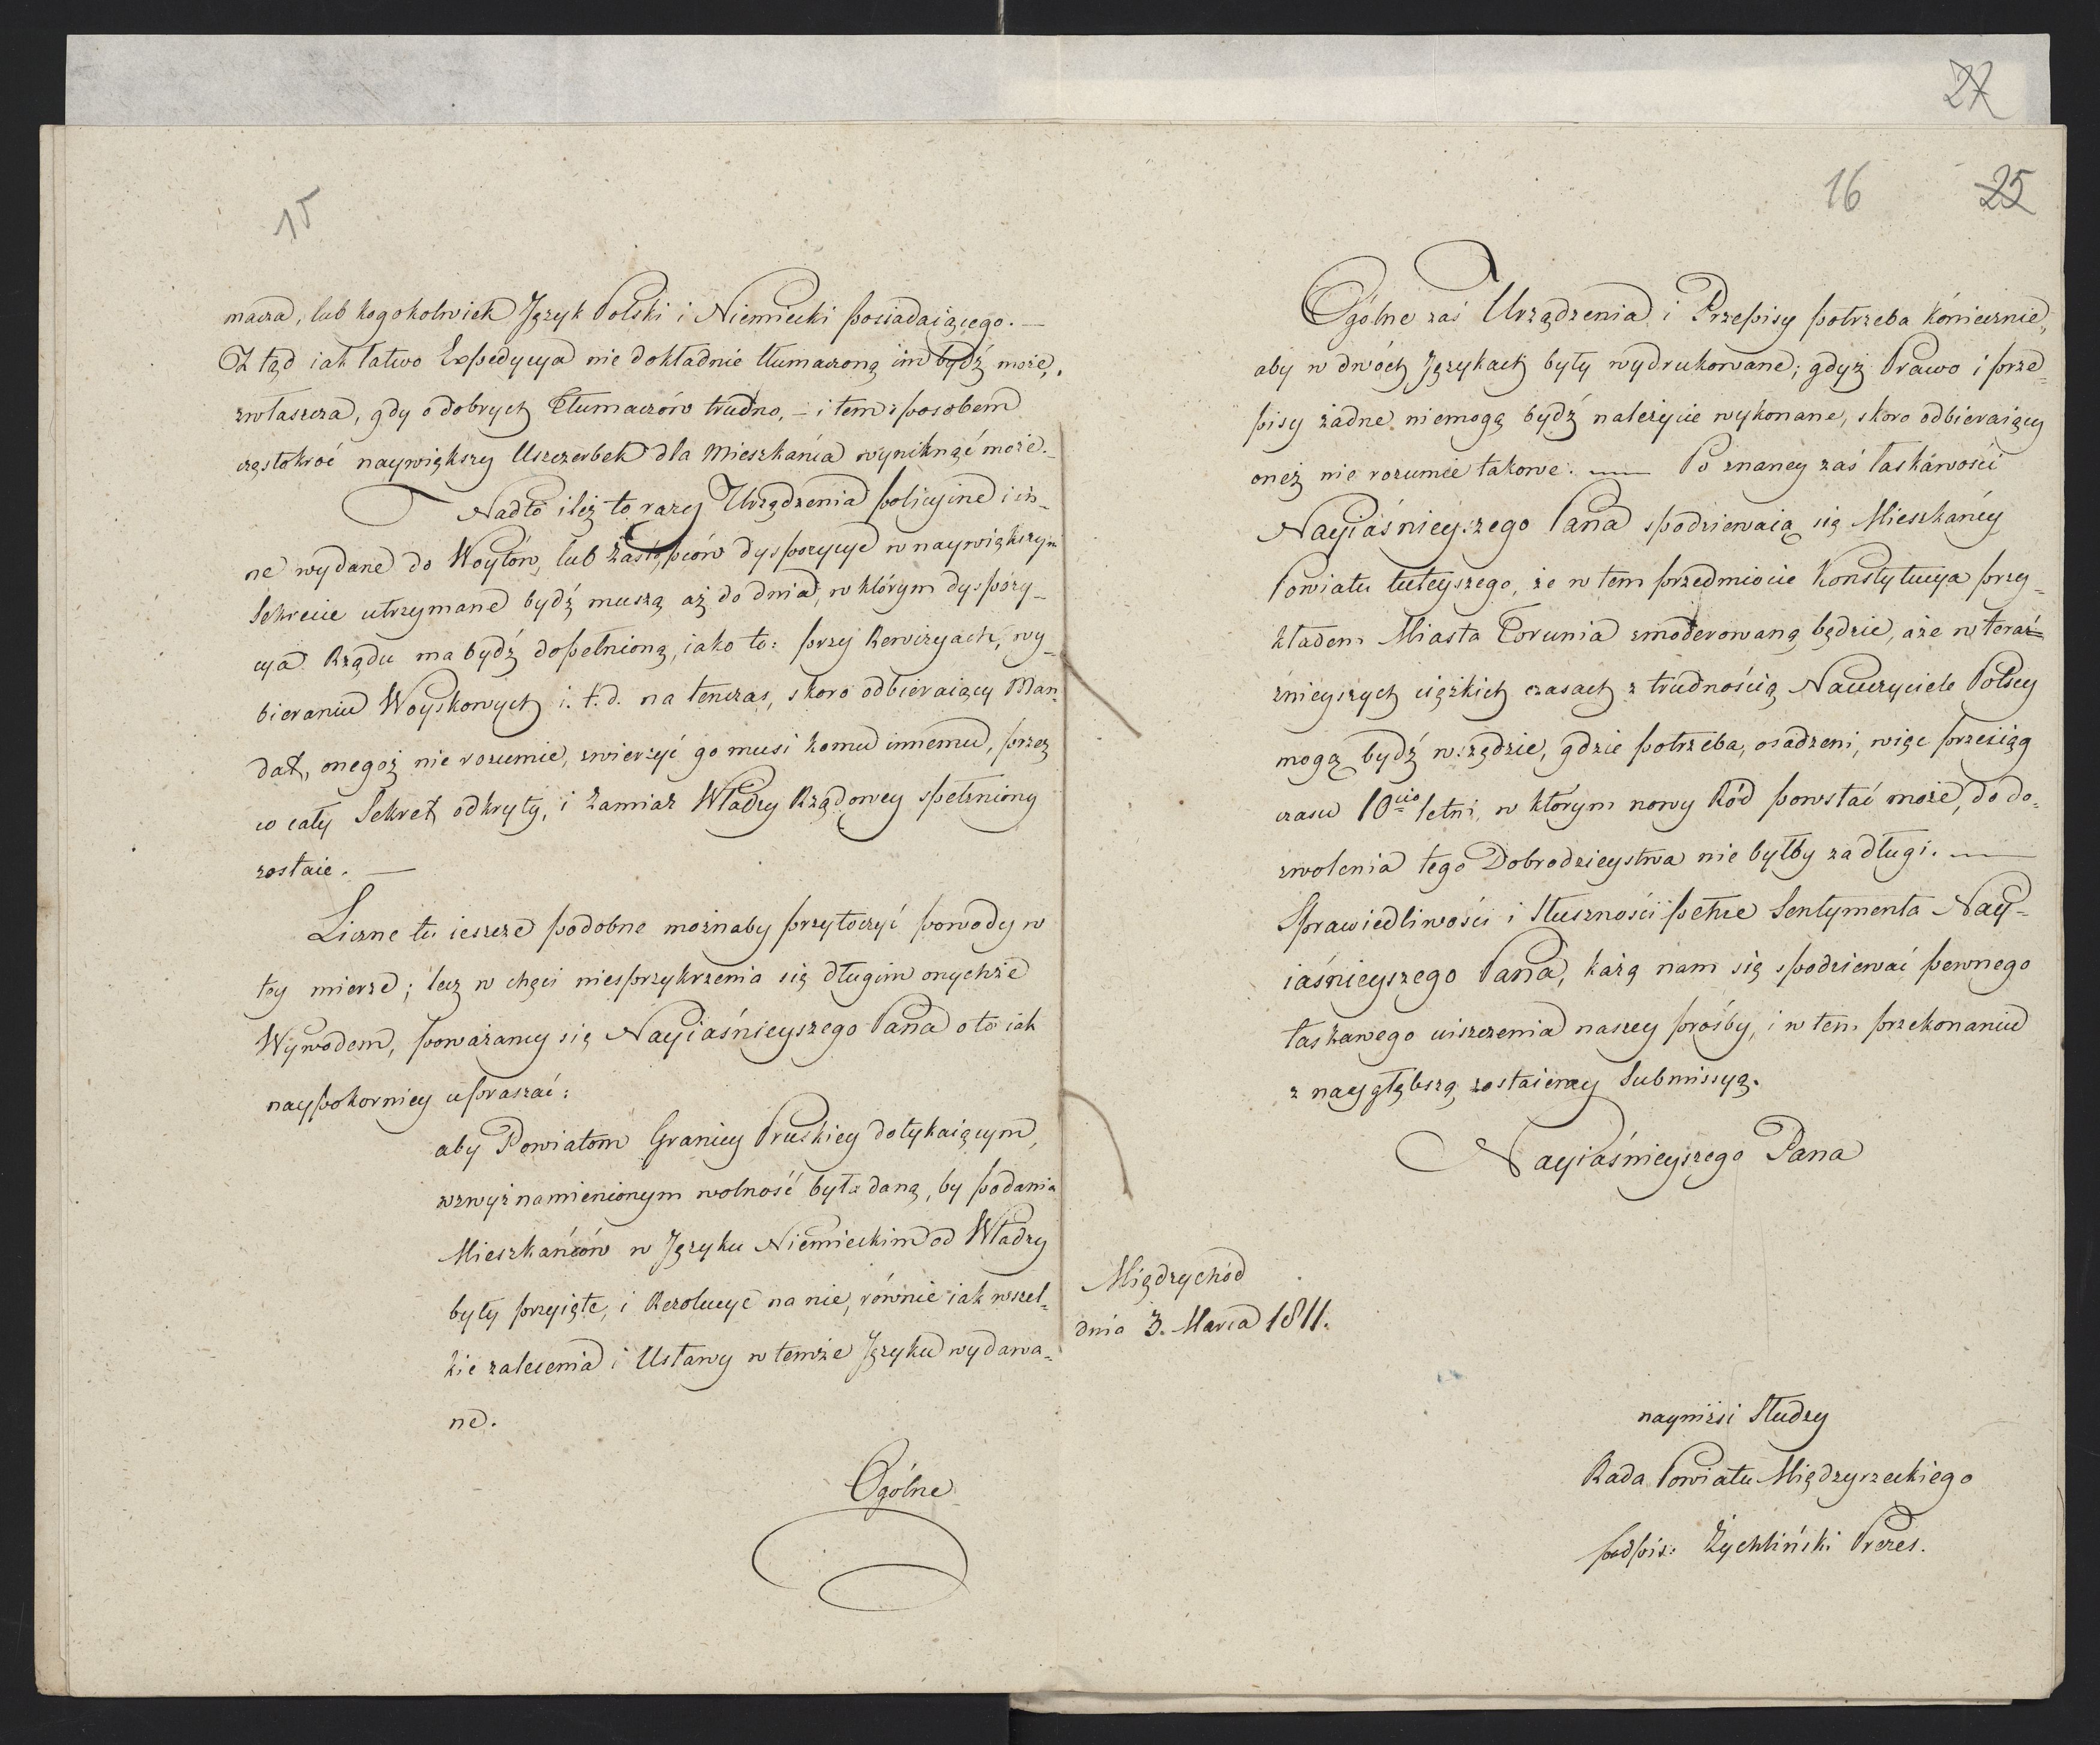 15
macza, lub kogokolwiek Język Polski i Niemiecki posiadaiącego. —
Z tąd iak łatwo Expedycya nie dokładnie tłumaczoną im bydź może,
zwłaszcza, gdy o dobrych Tłumaczów trudno, – i tem sposobem
częstokroć naywiększy Uszczerbek dla Mieszkańca wyniknąć może. –
Nadto ileż to razy Urządzenia policyine i in-
ne wydane do Woytów, lub Zastępców dyspozycye w naywiększym
Sekrecie utrzymane bydź muszą aż do dnia, w którym dyspozy-
cya Rządu ma bydź dopełnioną, iako to: przy Rewizyach, wy-
bieraniu Woyskowych i. t. d. na tenczas, skoro odbieraiący Man-
dat, onegoż nie rozumie, zwierzyć go musi komu innemu, przez
co cały Sekret odkryty, i Zamiar Władzy Rządowey spełzniony
zostaie. —
Liczne tu ieszcze podobne możnaby przytoczyć powody w
tey mierze; lecz w chęci niesprzykrzenia się długim onychże
Wywodem, poważamy się Nayiaśnieyszego Pana o to iak
naypokorniey upraszać:
aby Powiatom Granicy Pruskiey dotykaiącym,
wzwyż namienionym wolność była daną, by podania
Mieszkańców w Języku Niemieckim od Władzy
były przyięte, i Rezolucye na nie, równie iak wszel-
kie zalecenia i Ustawy w temże Języku wydawa-
ne.
Ogólne
27
16 25
Ogólne zaś Urządzenia i Przepisy potrzeba koniecznie,
aby w dwóch Językach były wydrukowane; gdyż Prawo i prze-
pisy żadne niemogą bydź należycie wykonane, skoro odbieraiący
oneż nie rozumie takowe. — Po znaney zaś łaskawości
Nayiaśnieyszego Pana spodziewaią się Mieszkańcy
Powiatu tuteyszego, że w tem przedmiocie Konstytucya przy-
kładem Miasta Torunia zmoderowaną będzie, aże w teraź-
znieyszych ciężkich czasach z trudnością Nauczyciele Polscy
mogą bydź wszędzie, gdzie potrzeba, osadzeni, więc przeciąg
czasu 10cio letni, w którym nowy Ród powstać może, do do-
zwolenia tego Dobrodzieystwa nie byłby za długi. —
Sprawiedliwości i Słuszności pełne Sentymenta Nay-
iaśnieyszego Pana, każą nam się spodziewać pewnego
łaskawego uiszczenia naszey prośby, i w tem przekonaniu
z naygłębszą zostaiemy Submissyą.
Nayiaśnieyszego Pana
Międzychód
dnia 3. Marca 1811.
nayniżsi Słudzy
Rada Powiatu Międzyrzeckiego
podpis: Żychliński Prezes.